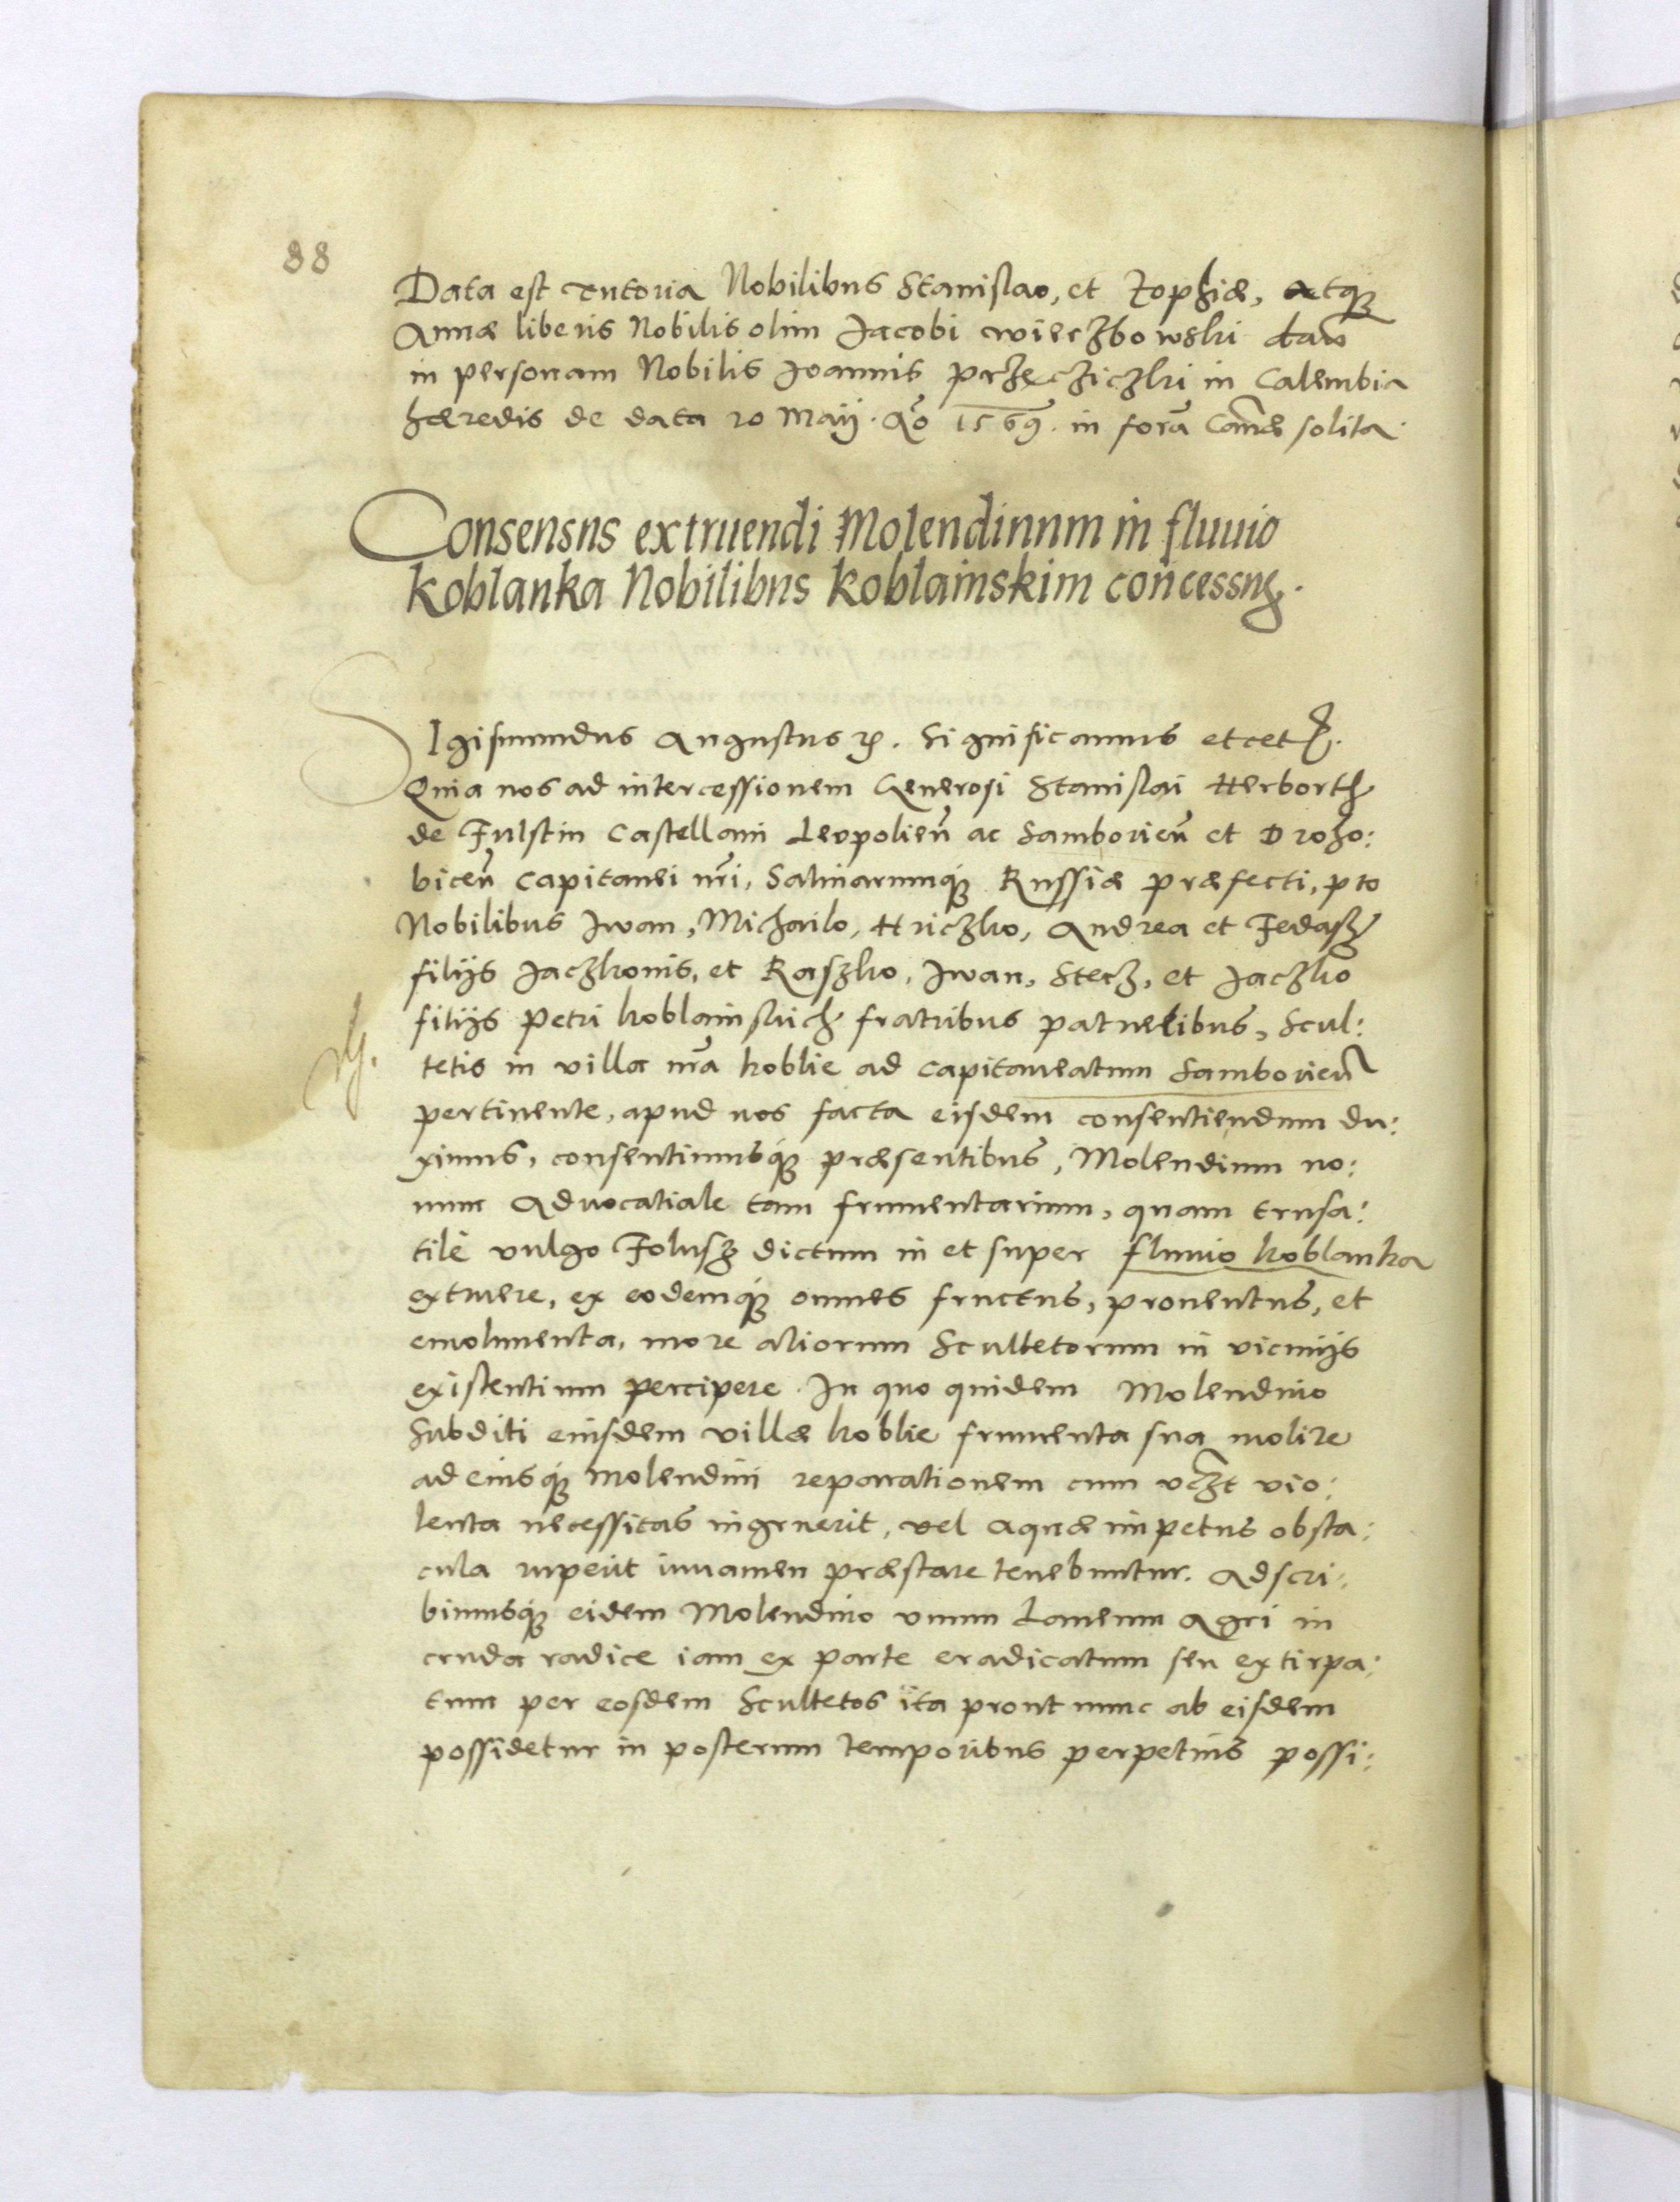 88
Data est Tutoria Nobilibus Stanislao, et Zophiæ, atq́
Annæ liberis Nobilis olim Jacobi wierzbowski
in personam Nobilis Joannis in Calembia
hæredis de data 20 Maÿ. Ao 1569. in forã Canæ solita.
Consensus extruendi Molendinum in fluuio
koblanka Nobilibus koblainskim concessus.
SIgismundus Augustus Significamus etcet.
Quia nos ad intercessionem Generosi Stanislai Herborth
de Fulstin Castellani Leopolien̄ ac Samborien̄ et Droho:
bicen̄ Capitanei nr̄i, Salinarumq́ Russiæ præfecti, pro
Nobilibus Iwan, Michailo, Hriczko, Andrea et Fedasz
filÿs Jaczkonis, et Raszko, Iwan, Stecz, et Jaczko
filÿs Petri koblainskich fratribus patruelibus, Scul:
tetis in villa nr̄a koblie ad Capitaneatum Samborien̄
pertinente, apud nos facta eisdem consentiendum du:
ximus, consentimusq́ præsentibus, Molendinum no:
uum Aduocatiale tam frumentarium, quam trusa:
tile vulgo Folusz dictum in et super fluuio koblanka
extruere, ex eodemq́ omnes fructus, prouentus, et
emolumenta, more aliorum Scultetorum in vicinÿs
existentium percipere. In quo quidem Molendino
Subditi eiusdem villæ koblie frumenta sua molire
ad eiusq́ molendini reparationem cum vio:
lenta necessitas ingruerit, vel aquæ impetus obsta:
cula ruperit iuuamen præstare tenebuntur. Adscri:
bimusq́ eidem Molendino vnum Laneum Agri in
cruda radice iam ex parte eradicatum seu extirpa:
tum per eosdem Scultetos ita prout nunc ab eisdem
possidetur in posterum temporibus perpetuis possi: